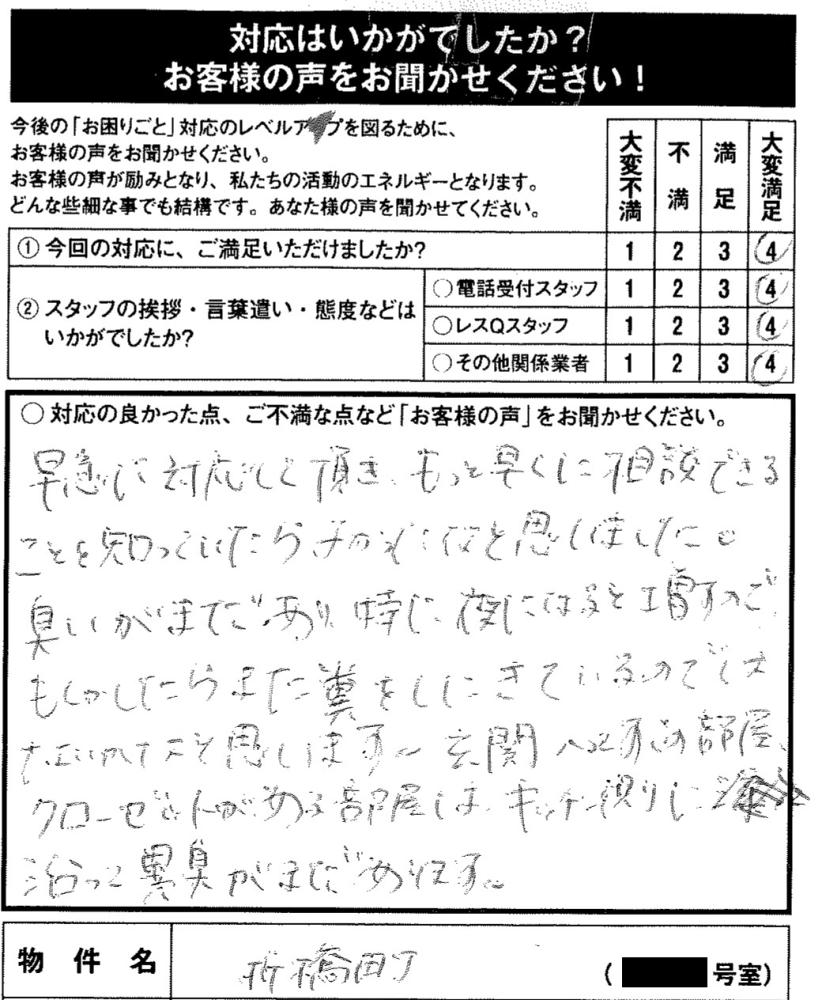 対応はいかがでしたか？
お客様の声をお聞かせください！
今後の「お困りごと」対応のレベルアップを図るために、
お客様の声をお聞かせください。
お客様の声が励みとなり、私たちの活動のエネルギーとなります。
どんな些細な事でも結構です。あなた様の声を聞かせてください。
大変不満 不満 満足 大変満足
① 今回の対応に、ご満足いただけましたか？ 1 2 3 4
② スタッフの挨拶・言葉遣い・態度などは
いかがでしたか？
○電話受付スタッフ 1 2 3 4
○レスQスタッフ 1 2 3 4
○その他関係業者 1 2 3 4
○ 対応の良かった点、ご不満な点など「お客様の声」をお聞かせください。
早急に対応して頂き、もっと早くに相談できる
ことを知っていたら よかったなと思いました。
臭いがまだあり、特に夜になると増すので
もしかしたらまた糞をしにきているのでは
ないかなと思います。玄関入ってすぐの部屋、
クローゼットがある部屋は、キッチン換りに
沿って異臭がまだあります。
物件名
折橋町
( 号室)